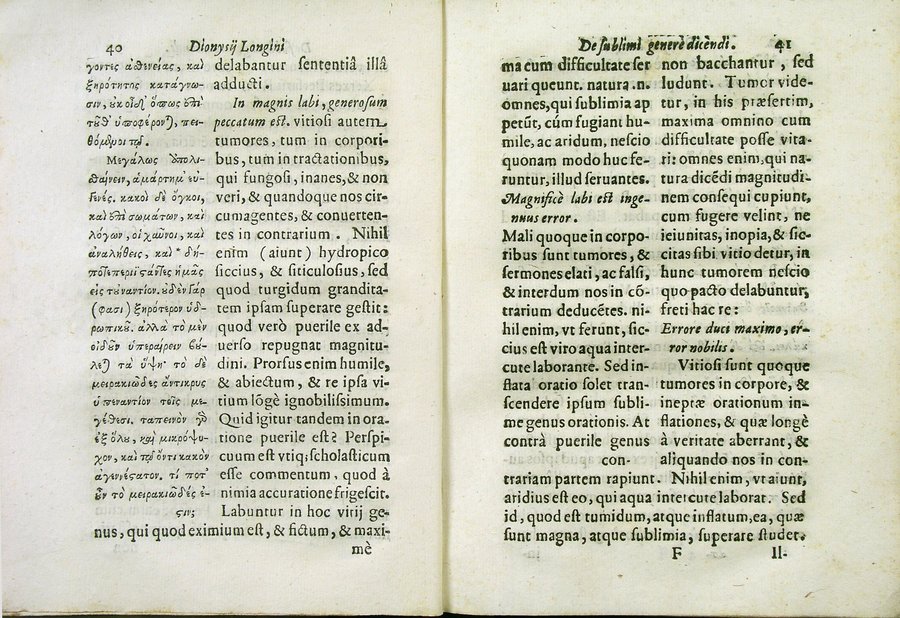 40
Dionysij Longini
γοντες ἀσθενείας, καὶ
ξηρότητος κατάγνω-
πει-
Μεγάλως
θαίνειν, ἁμάρτημ εὐ-
γενές. κακοὶ δὲ ὄγκοι,
σωμάτων, καὶ
λόγων, οἱ χαῦνοι, καὶ
ἀναλήθεις, καὶ * δή-
ἡμᾶς
εἰς τοὐναντίον. οὐδὲν γάρ
(φασὶ) ξηρότερον ὑδ-
ρωπικοῦ. ἀλλὰ τὸ μὲν
οἰδοῦν ὑπεραίρειν βού-
τὰ ὕψη τὸ δὲ
μειρακιῶδες ἄντικρυς
ὑπεναντίον τοῖς με-
γέθεσι. ταπεινὸν
ἐξ ὅλου, καὶ μικρόψυ-
χον, καὶ κακὸν
ἀγεννέστατον. τί ποτ'
τὸ μειρακιῶδές ἐ-
στιν;
delabantur sententiâ illâ
adducti.
In magnis labi, generosum
peccatum est. vitiosi autem
tumores, tum in corpori-
bus, tum in tractationibus,
qui fungosi, inanes, & non
veri, & quandoque nos cir-
cumagentes, & conuerten-
tes in contrarium . Nihil
enim (aiunt) hydropico
siccius, & siticulosius, sed
quod turgidum grandita-
tem ipsam superare gestit:
quod verò puerile ex ad-
uerso repugnat magnitu-
dini. Prorsus enim humile,
& abiectum, & re ipsa vi-
tium lõgè ignobilissimum.
Quid igitur tandem in ora-
tione puerile est? Perspi-
cuum est vtiq; scholasticum
esse commentum, quod à
nimia accuratione frigescit.
Labuntur in hoc vitij ge-
nus, qui quod eximium est, & fictum, & maxi-
mè
De sublimi genere dicendi.
41
ma cum difficultate ser
uari queunt. natura .n.
omnes, qui sublimia ap
petũt, cúm fugiant hu-
mile, ac aridum, nescio
quonam modo huc fe-
runtur, illud seruantes.
Magnificè labi est inge-
nuus error.
Mali quoque in corpo-
ribus sunt tumores, & in
sermones elati, ac falsi,
& interdum nos in cõ-
trarium deducẽtes. ni-
hil enim, vt ferunt, sic-
cius est viro aqua inter-
cute laborante. Sed in-
flata oratio solet tran-
scendere ipsum subli-
me genus orationis. At
contrà puerile genus
con-
non bacchantur , sed
ludunt. Tumor vide-
tur, in his præsertim,
maxima omnino cum
difficultate posse vita-
ri: omnes enim, qui na-
tura dicẽdi magnitudi-
nem consequi cupiunt,
cum fugere velint, ne
ieiunitas, inopia, & sic-
citas sibi vitio detur, in
hunc tumorem nescio
quo pacto delabuntur,
freti hac re:
Errore duci maximo, er-
ror nobilis.
Vitiosi sunt quoque
tumores in corpore, &
ineptæ orationum in-
flationes, & quæ longè
à veritate aberrant, &
aliquando nos in con-
trariam partem rapiunt. Nihil enim, vt aiunt,
aridius est eo, qui aqua intercute laborat. Sed
id, quod est tumidum, atque inflatum, ea, quæ
sunt magna, atque sublimia, superare studet.
F
il-